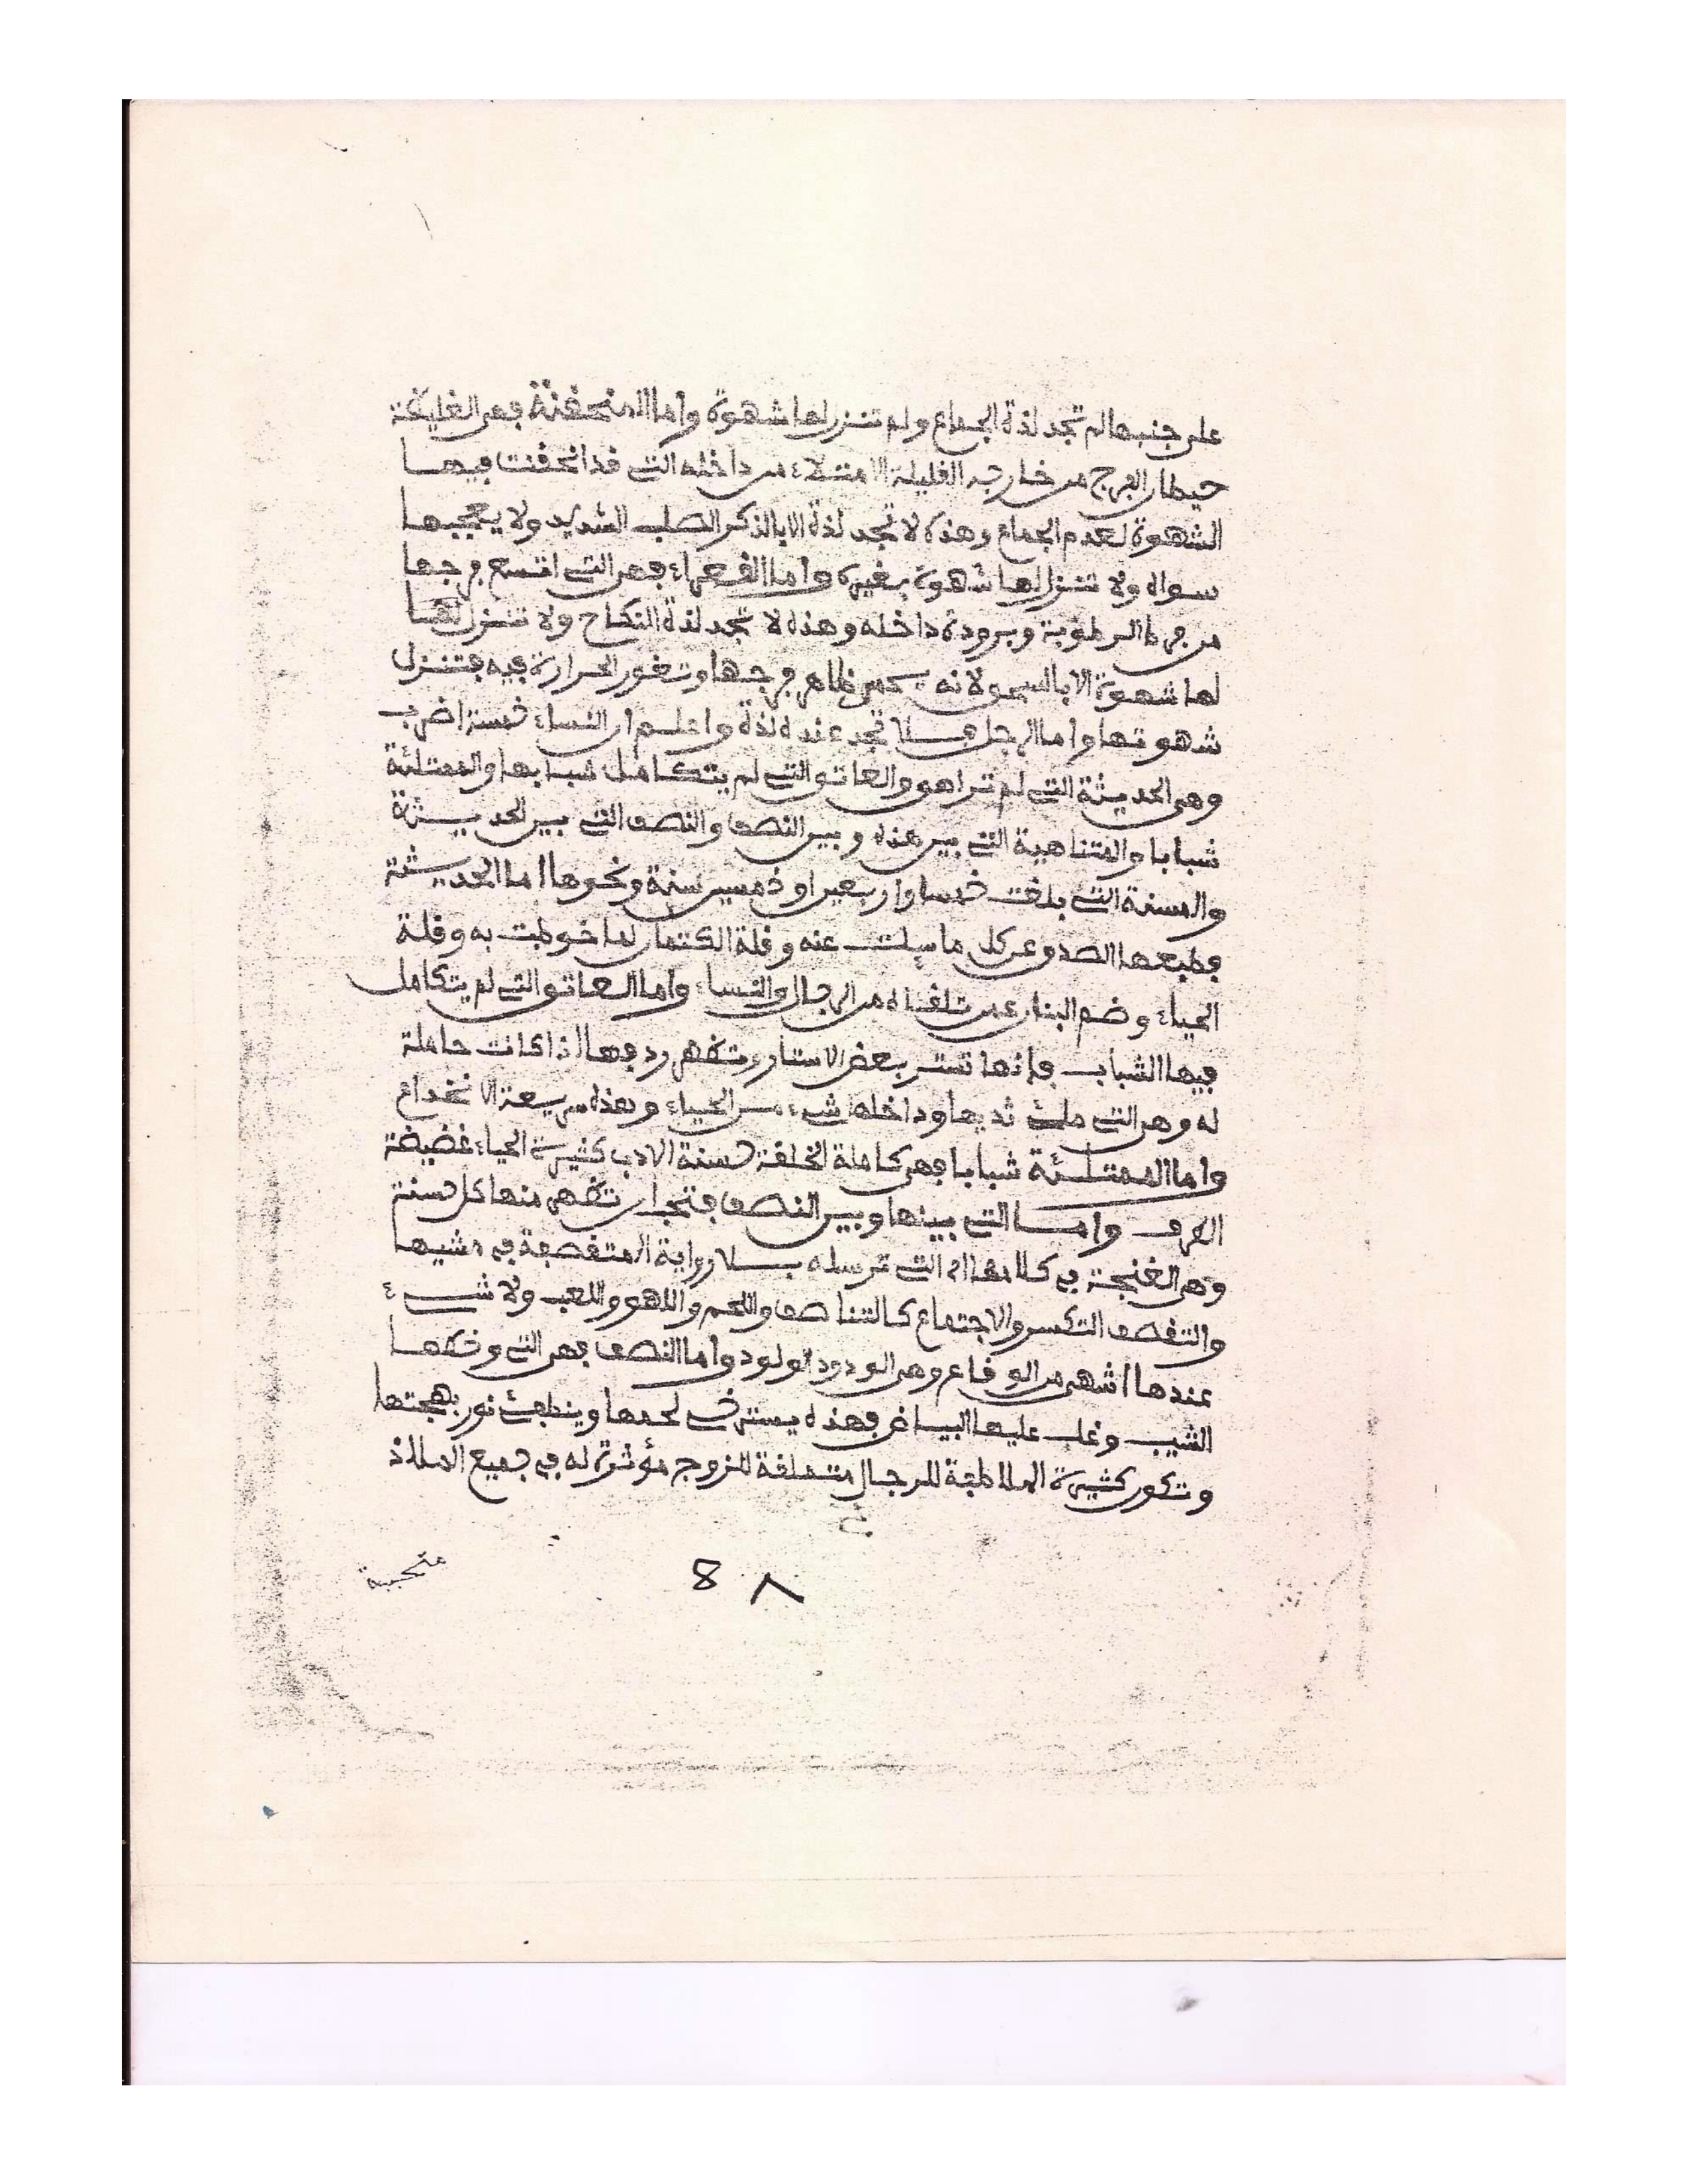 على جنبها لم تجد لذة الجماع ولم تنزل لها شهوة واما المنحقنة فهى الغليظة
حيطان الفرج من خارجه القليلة الامتلاء من داخله التى قد انحقنت فيها
الشهوة لعدم الجماع وهذه لا تجد لذة الا بالذكر الصلب الشديد ولا يعجبها
سواه ولا تنزل لها شهوة بغيره واما القعراء فهى التى اتسع فرجها
من فرط الرطوبة وبرودة داخله وهذه لا تجد لذة النكاح ولا تنزل لها
لها شهوة الا بالسحق لانه ظاهر فرجها وتغور الحرارة فيه فتنزل
شهوتها واما الرجل فلا تجد عنده لذة واعلم ان النساء خمسة اضرب
وهى الحديثة التى لم تراهق والعاتق التى لم يتكامل شبابها والممتلئة
شبابا والمتناهية التى بين هذه وبين النصف والنصف التى بين الحديثة
والمسنة التى بلغت خمسا واربعين او خمسين سنة ونحوها اما الحديثة
فطبعها الصدق عن كل ما سيلت عنه وقلة الكتمان لما خوطبت به وقلة
الحياء وضم البنان عمن تلقاه من الرجال والنساء واما العاتق التى لم يتكامل
فيها الشباب فانها تستر بعض الاستار وتظهر ردفها اذا كانت حاملة
له وهى التى ملئ ثديها وداخلها شىء من الحياء وهذه سريعة الانخداع
واما الممتلئة شبابا فهى كاملة الخلقة حسنة الادب كثيرة الحياء غضيضة
الطرف واما التى بينها وبين النصف فتجد ان تظهر منها كل حسنة
وهى الغنجة فى كلامها اى التى ترسله بلا رواية المتقصفة فى مشيها
والتقصف التكسر والاجتماع كالتناصف واللحم واللهو واللعب ولا شىء
عندها اشهى من الوقاع وهى الودود الولود واما النصف فهى التى وخطها
الشيب وغلب عليها البياض فهذه يسترخى لحمها وينطفئ نور بهجتها
وتكون كثيرة الملاطفة للرجال متملقة للزوج مؤثرة له فى جميع الملاذ
متحببة
8 ٨